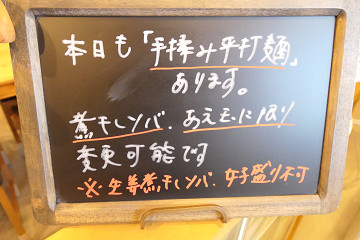 本日も「手揉み平打麺」
あります。
煮干しソバ、あえ玉に限り
変更可能です
※生姜煮干しソバ、女子盛り不可